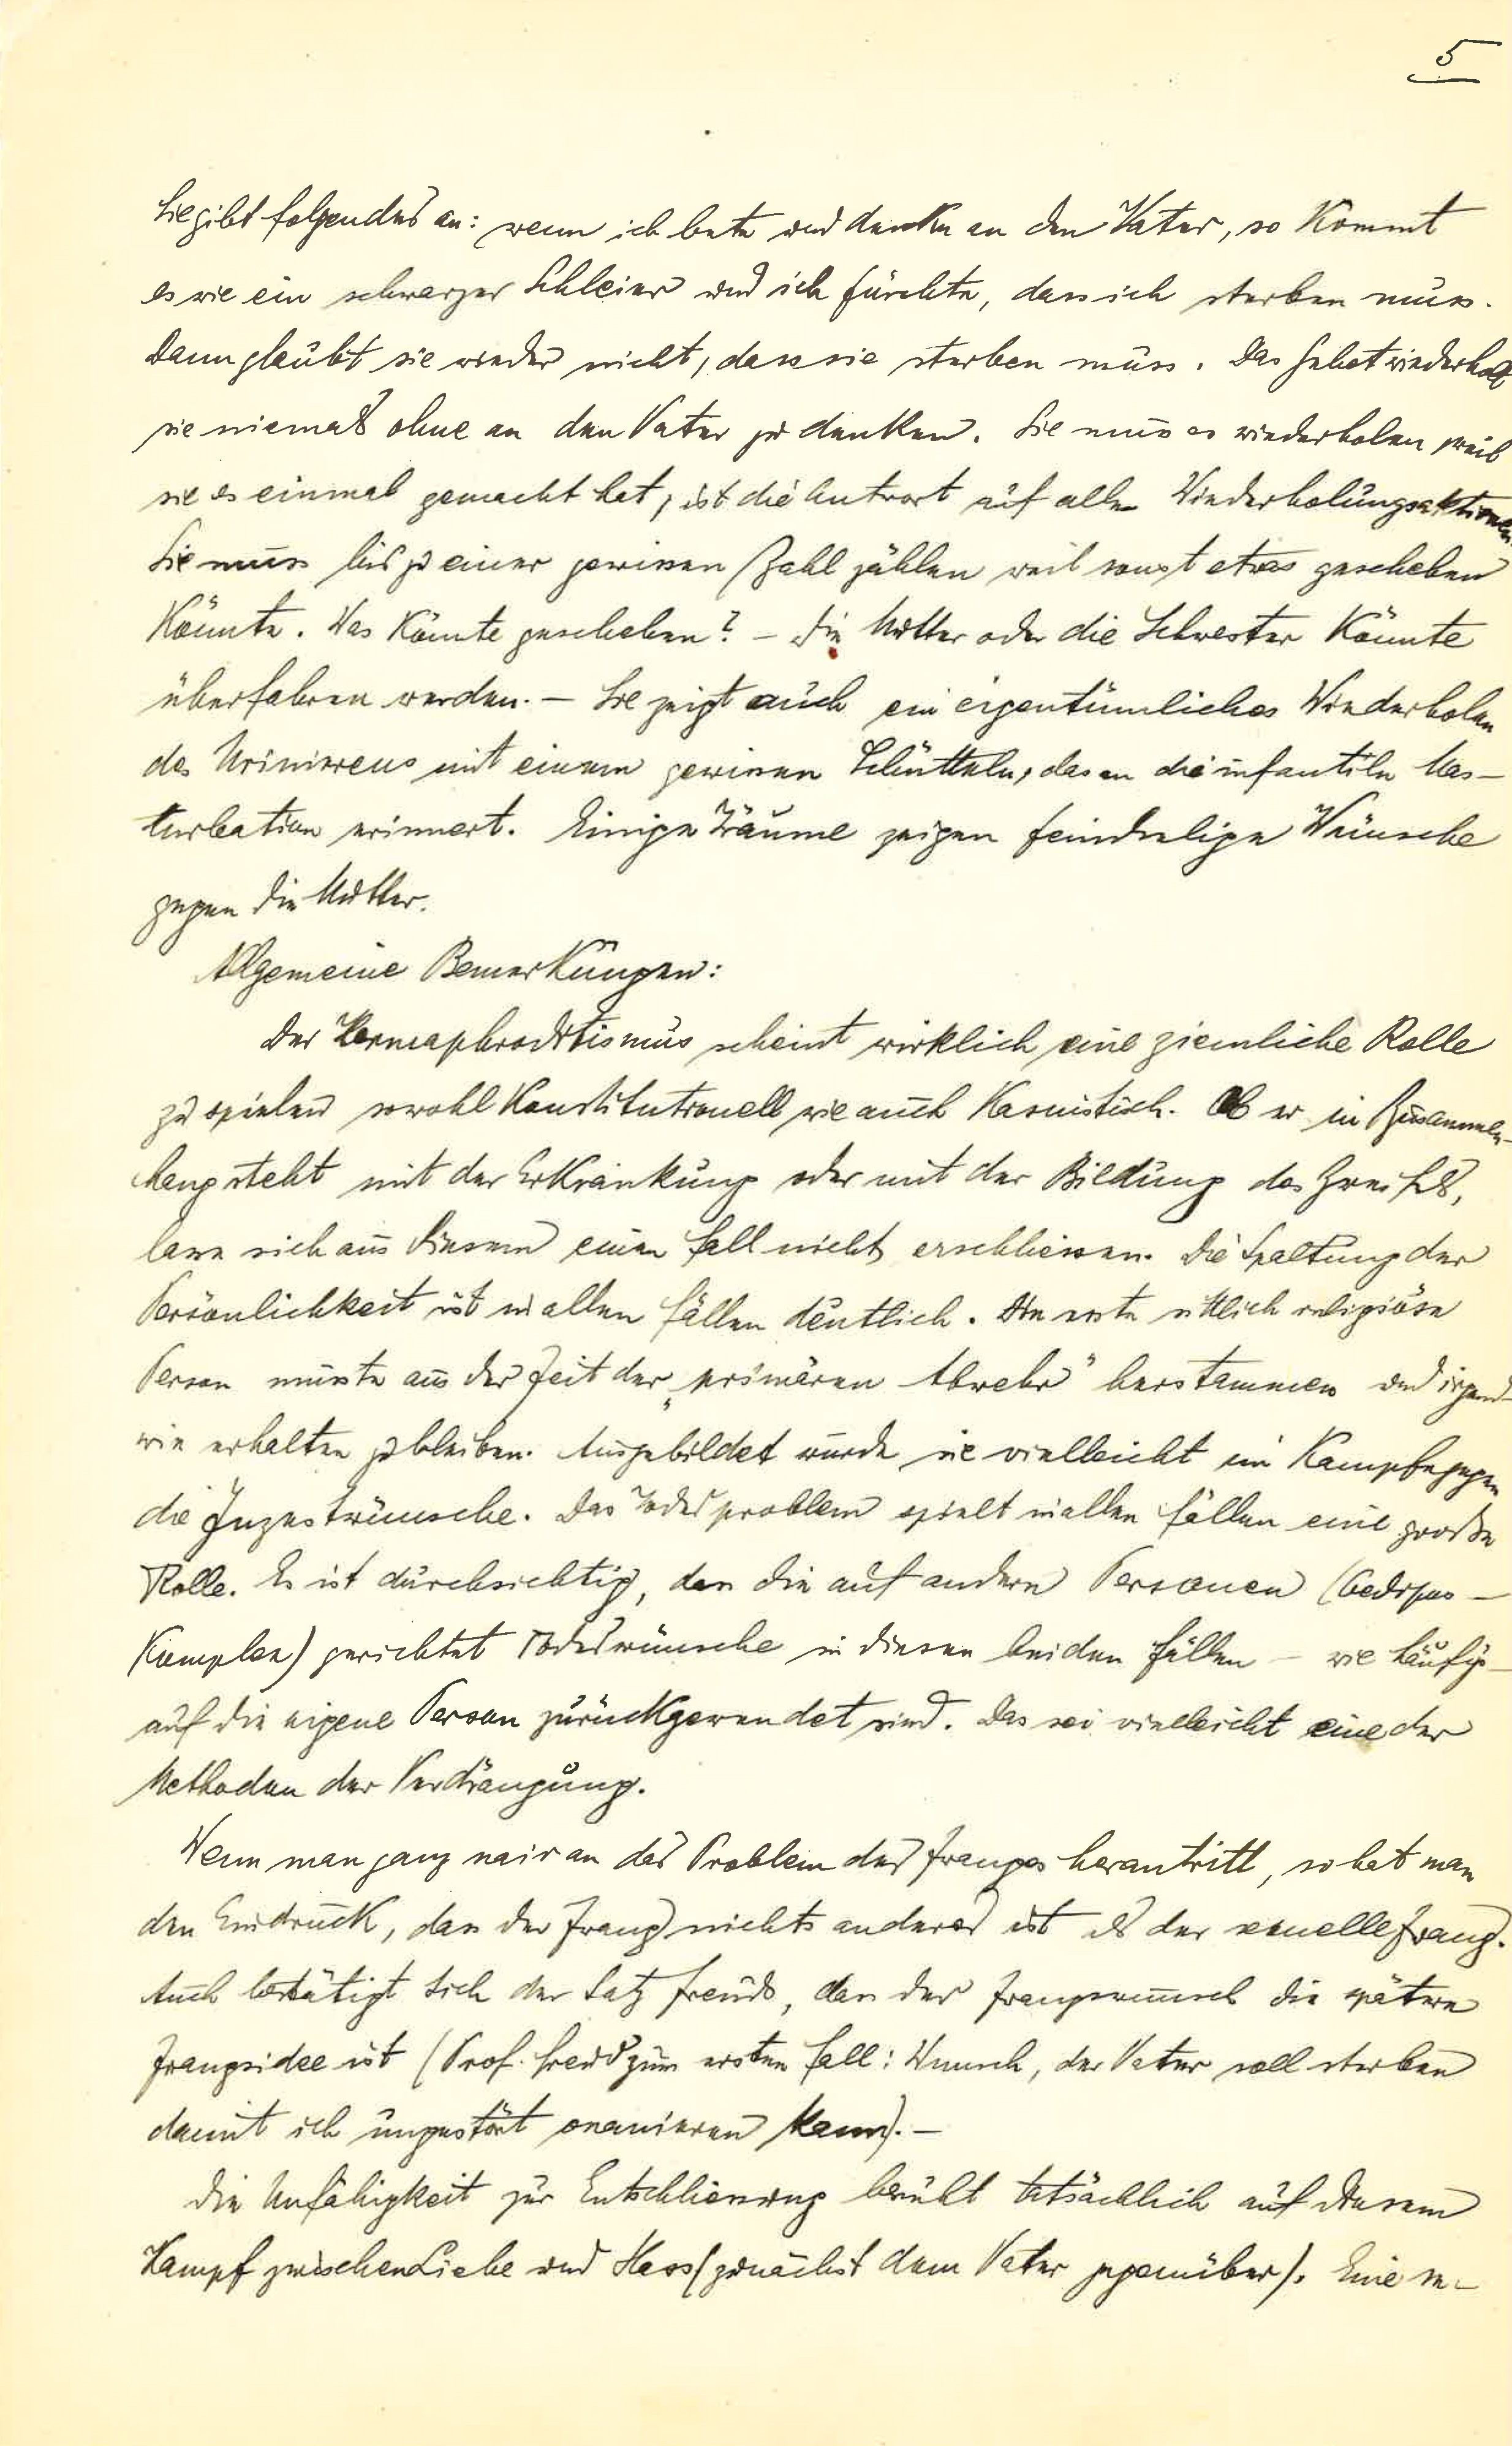 5
Sie gibt folgendes an: wenn ich bete und denke an den Vater, so kommt
es wie ein schwarzer Schleier und ich fürchte, dass ich sterben muss.
Dann glaubt sie wieder nicht, dass sie sterben muss. Das Gebet wiederholt
sie niemals ohne an den Vater zu denken. Sie muss es wiederholen, weil
sie es einmal gemacht hat, ist die Antwort auf alle Wiederholungsaktionen.
Sie muss bis zu einer gewissen Zahl zählen weil sonst etwas geschehen
könnte. Was könnte geschehen? – Die Mutter oder die Schwester könnte
überfahren werden. – Sie zeigt auch ein eigentümliches Wiederholen
des Urinierens mit einem gewissen Schütteln, das an die infantile Mas-
turbation erinnert. Einige Träume zeigen feindselige Wünsche
gegen die Mutter.
Allgemeine Bemerkungen:
Der Hermaphroditismus scheint wirklich eine ziemliche Rolle
zu spielen sowohl konstitutionell wie auch kasuistisch. Ob er in Zusammen-
hang steht mit der Erkrankung oder mit der Bildung des Zweifels,
lasse sich aus diesem einen Fall nicht erschliessen. Die Spaltung der
Persönlichkeit ist in allen Fällen deutlich. Die erste sittlich religiöse
Person müsste aus der Zeit der „primären Abwehr" herstammen und irgend-
wie erhalten zu bleiben. Ausgebildet wurde sie vielleicht im Kampfe gegen
die Inzestwünsche. Das Todesproblem spielt in allen Fällen eine große
Rolle. Es ist durchsichtig, dass die auf andere Personen (Oedipus –
Komplex) gerichtet Todeswünsche in diesen beiden Fällen – wie häufig –
auf die eigene Person zurückgewendet sind. Das sei vielleicht eine der
Methoden der Verdrängung.
Wenn man ganz naiv an das Problem des Zwanges herantritt, so hat man
den Eindruck, dass der Zwang nichts anderes ist als der sexuelle Zwang.
Auch bestätigt sich der Satz Freuds, dass der Zwangswunsch die spätere
Zwangsidee ist (Prof. Freud zum ersten Fall: Wunsch, der Vater soll sterben
damit ich ungestört onanieren kann). –
Die Unfähigkeit zur Entschliessung beruht tatsächlich auf diesem
Kampf zwischen Liebe und Hass (zunächst dem Vater gegenüber). Eine se-